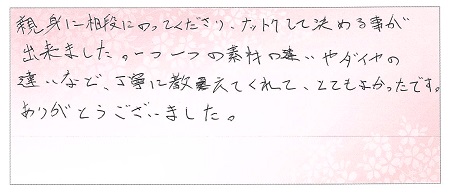 親身に相段にのってくださり、ナットクして決める事が
出来ました。一つ一つの素材の違いやダイヤの
違いなど、丁寧に教えてくれて、とてもよかったです。
ありがとうございました。